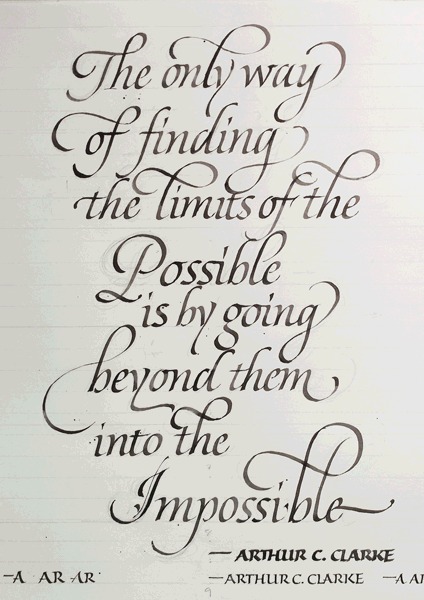 The only way
of finding
the limits of the
Possible
is by going
beyond them
into the
Impossible
— ARTHUR C. CLARKE
—A AR AR — ARTHUR C. CLARKE —A AR